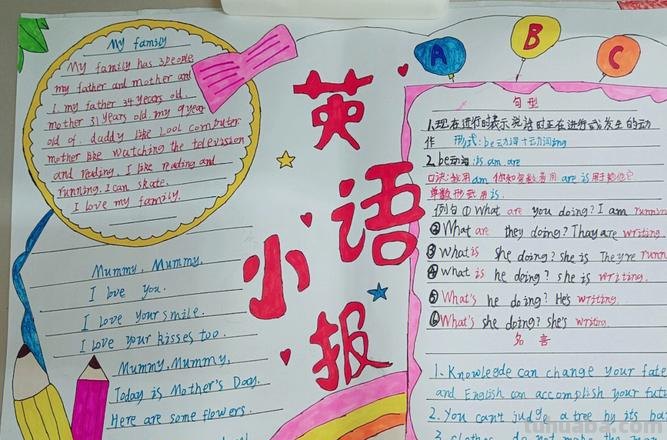 My family
My family has 3people
my father and mother and
I. my father 34 years old.
mother 31 years old. my 9year
old of. daddy like Look computer
mother like watching the television
and reading. I like reading and
running. I can skate.
I love my family.
Mummy, Mummy,
I love you.
I love your smile.
I love your kisses too.
Mummy, Mummy,
Today is Mother's Day.
Here are some flowers.
英语
小报
A B C
句型
1.现在进行时表示说话时正在进行或发生的动
作 形式:be动词+动词ing
2.be动词:is am are
口诀:我用am 你和复数看用are is用于他它
单数形式用is.
例句①What are you doing? I am
②What are they doing? Thay are writing.
③What is she doing? she is They're
④what is he doing? she is writing.
⑤What's he doing? He's writing.
⑥What's she doing? she's writing.
名言
1.Knowlegde can change your fate
and English can accomplish your
2.You can't judge a tree by its
tuhuaba.com